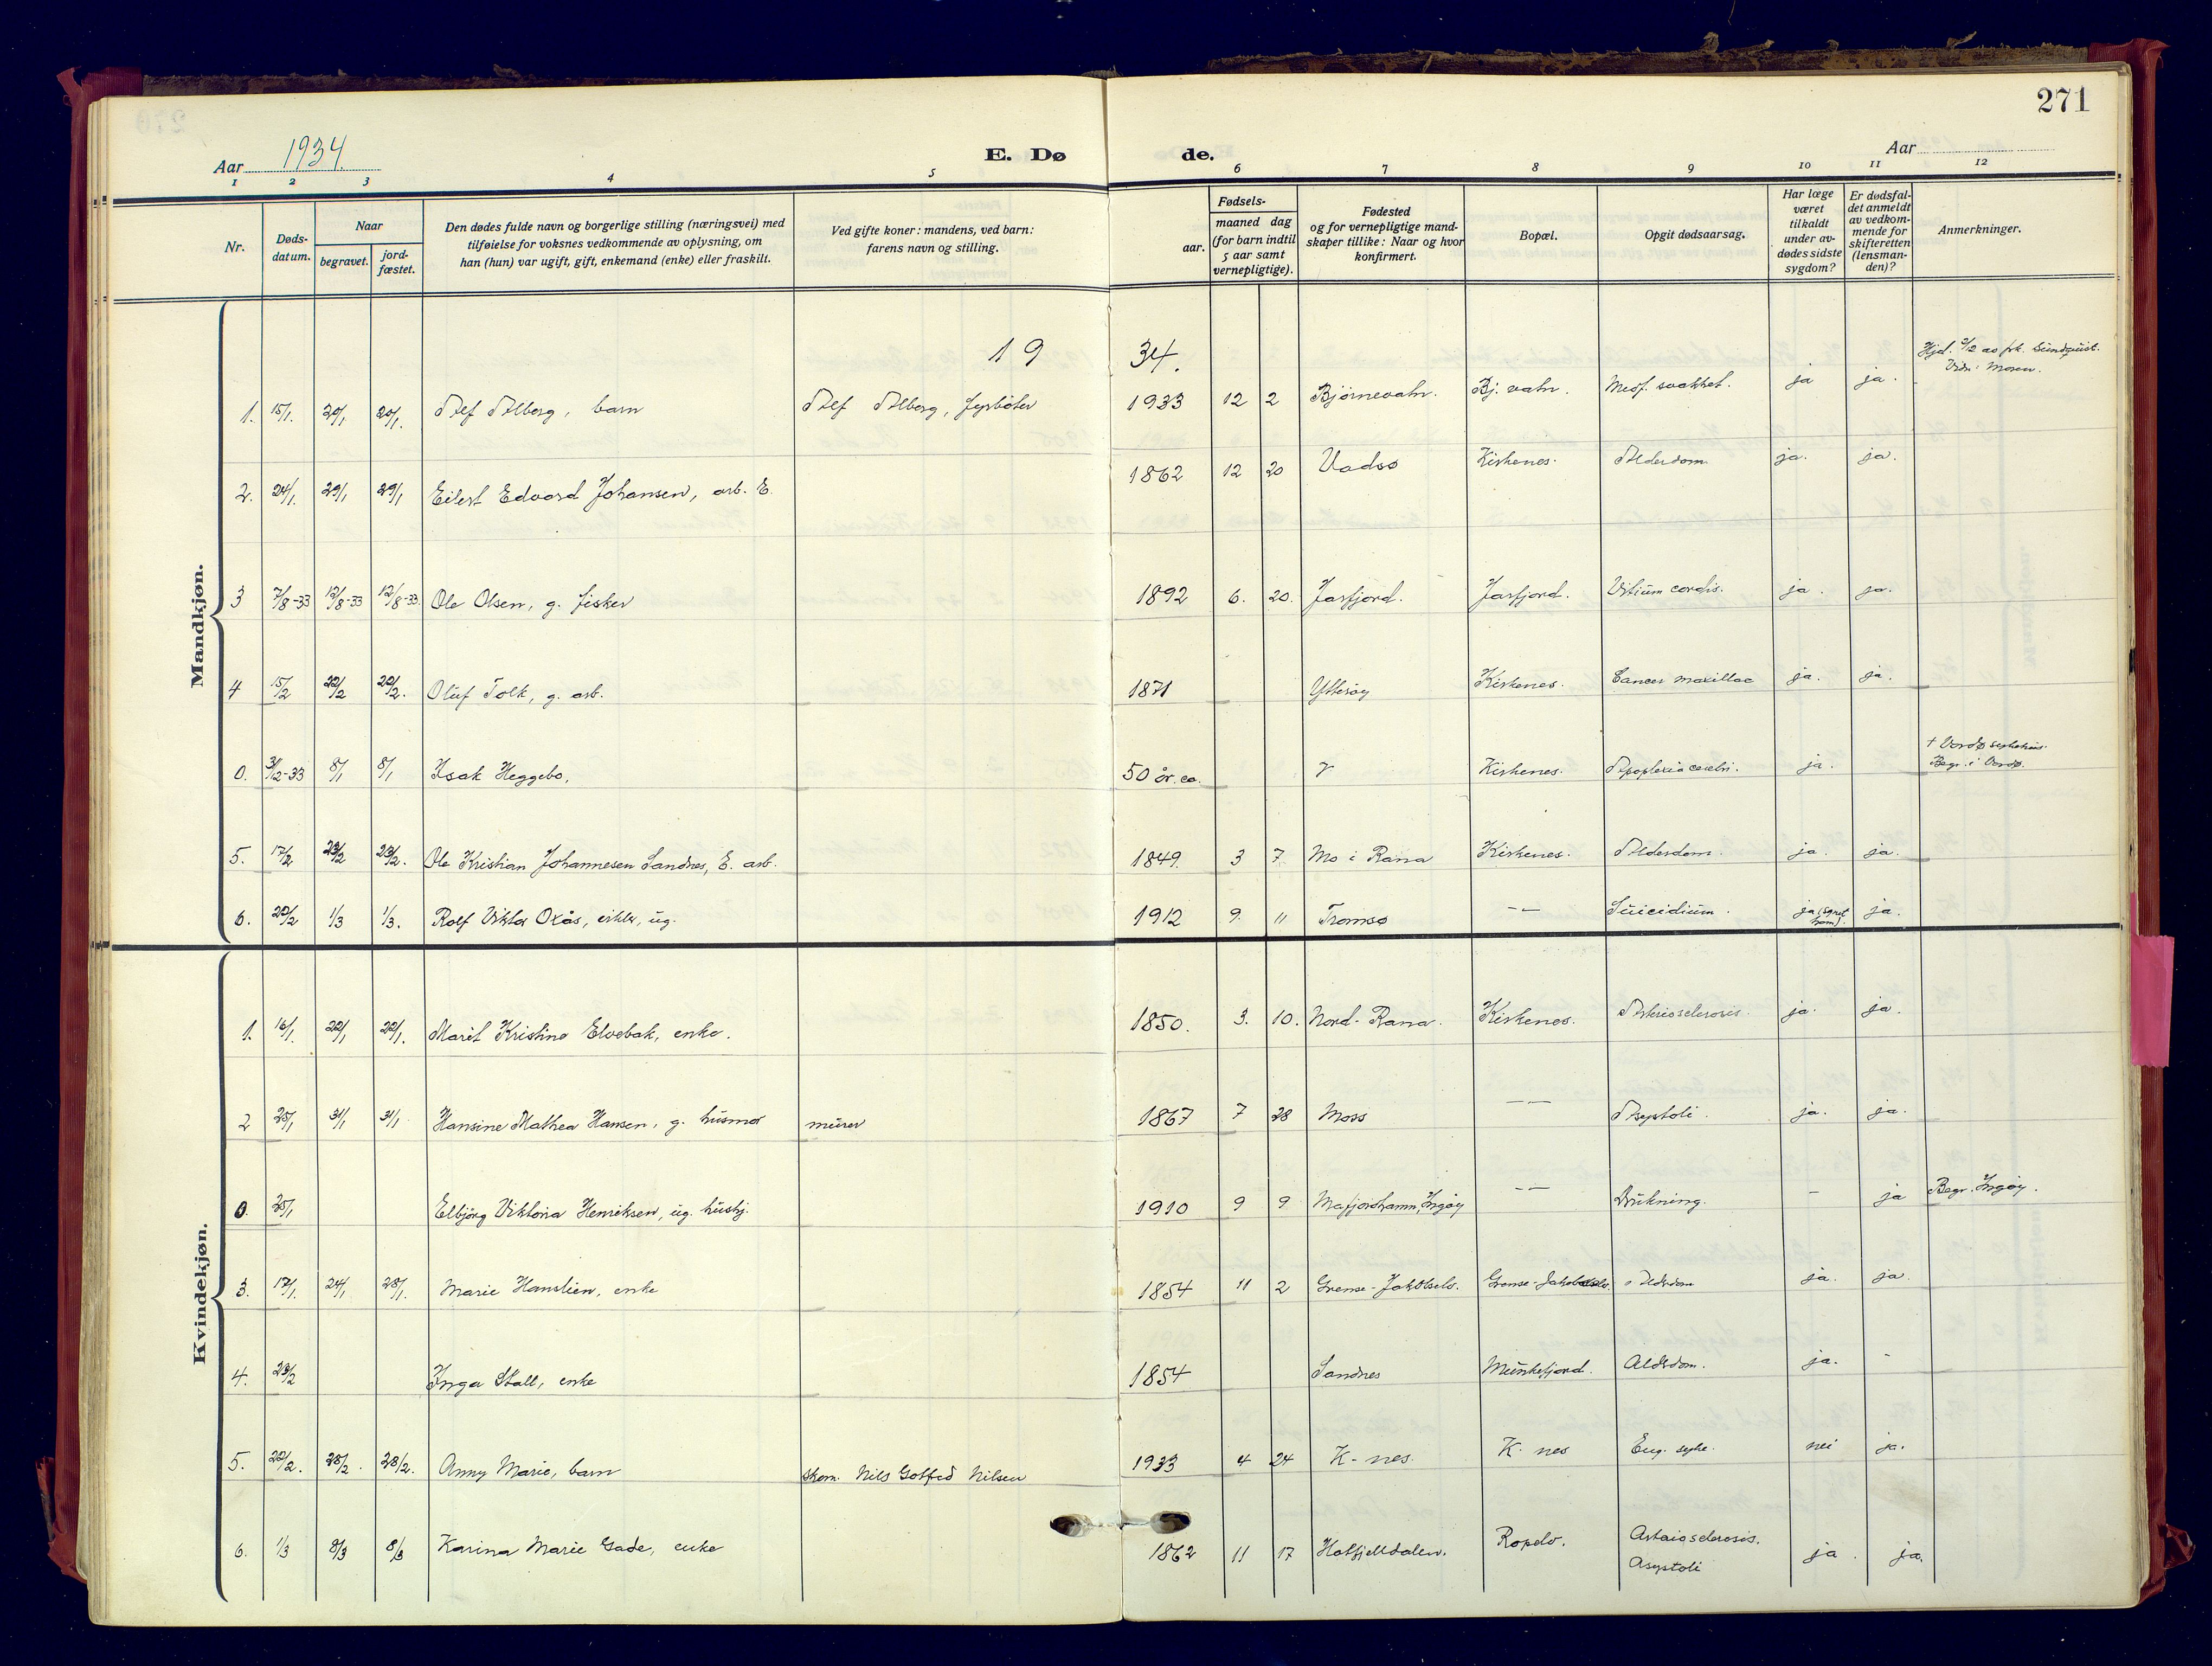 271
Aar 1934.
E. Dø
de.
Aar
1 2 3 4 5 6 7 8 9 10 11 12
Nr.
Døds-
datum.
Naar
begravet.
jord-
fæstet.
Den dødes fulde navn og borgerlige stilling (næringsvei) med
tilføielse for voksnes vedkommende av oplysning, om
han (hun) var ugift, gift, enkemand (enke) eller fraskilt.
Ved gifte koner: mandens, ved barn:
farens navn og stilling.
Fødsels-
aar.
maaned dag
(for barn indtil
5 aar samt
vernepligtige).
Fødested
og for vernepligtige mand-
skaper tillike: Naar og hvor
konfirmert.
Bopæl.
Opgit dødsaarsag.
Har læge
været
tilkaldt
under av-
dødes sidste
sygdom?
Er dødsfal-
det anmeldt
av vedkom-
mende for
skifteretten
(lensman-
den)?
Anmerkninger.
19 34.
Mandkjøn.
1. 15/1. 20/1 20/1. Alf Alberg, barn Alf Alberg, fyrbøter 1933 12 2 Bjørnevatn. Bj. vatn. Medf. svakhet. ja ja. Hjd. av frk. Sundquist.
2. 24/1. 29/1 29/1 Eilert Edvard Johansen, arb. E. 1862 12 20 Vadsø Kirkenes. Alderdom ja. ja.
3 7/8-33 12/8-33 12/8-33. Ole Olsen, g. fisker 1892 6. 20. Jarfjord. Jarfjord. Vitium cordis. ja. ja.
4 15/2 22/2 22/2. Oluf Tolk, g. arb. 1871 Ytterøy Kirkenes. Cancer maxillae ja. ja.
0. 31/12-33 8/1 8/1 Isak Heggebo. 50 år. ca. ? Kirkenes. Apoplexia cerebri. ja. + Vardø sykehus.
Begr. i Vardø.
5. 17/2 23/2 23/2. Ole Kristian Johannesen Sandnes, E. arb. 1849. 3 7 Mo i Rana Kirkenes. Alderdom. ja. ja.
6. 20/2 1/3 1/3. Rolf Viktor Oxås, ug. 1912 9. 11 Tromsø -"- Suicidium. ja ja.
Kvindekjøn.
1. 16/1. 22/1 22/1. Marit Kristine Elvebak, enke. 1850. 3. 10. Nord-Rana. Kirkenes. Arteriosclerosis. ja. ja.
2 25/1 31/1 31/1 Hansine Mathea Hansen, g. husmor murer 1867 7 28 Moss -"- Asystoli. ja. ja.
0. 25/1 Elbjørg Viktoria Henriksen, ug. hushj. 1910 9 9 Mafjordhamn, Ingøy -"- Drukning. - ja Begr. Ingøy.
3. 17/1. 24/1 28/1. Marie Hanslien, enke 1854 11 2 Grense-Jakobselv. Grense-Jakobselv. Alderdom ja. ja.
4. 23/2 Inga Stall, enke 1854 Sandnes Munkefjord. Alderdom. ja. -
5. 22/2. 28/2. 28/2. Anny Marie, barn skom. Nils Gotfred Nilsen 1933 4 24 K-nes. K-nes Eng. syke. nei ja.
6. 1/3 8/3 8/3 Karina Marie Gade, enke 1862 11 17 Hatfjelldalen. Ropelv. Arteriosclerosis.
Asystoli ja. ja.